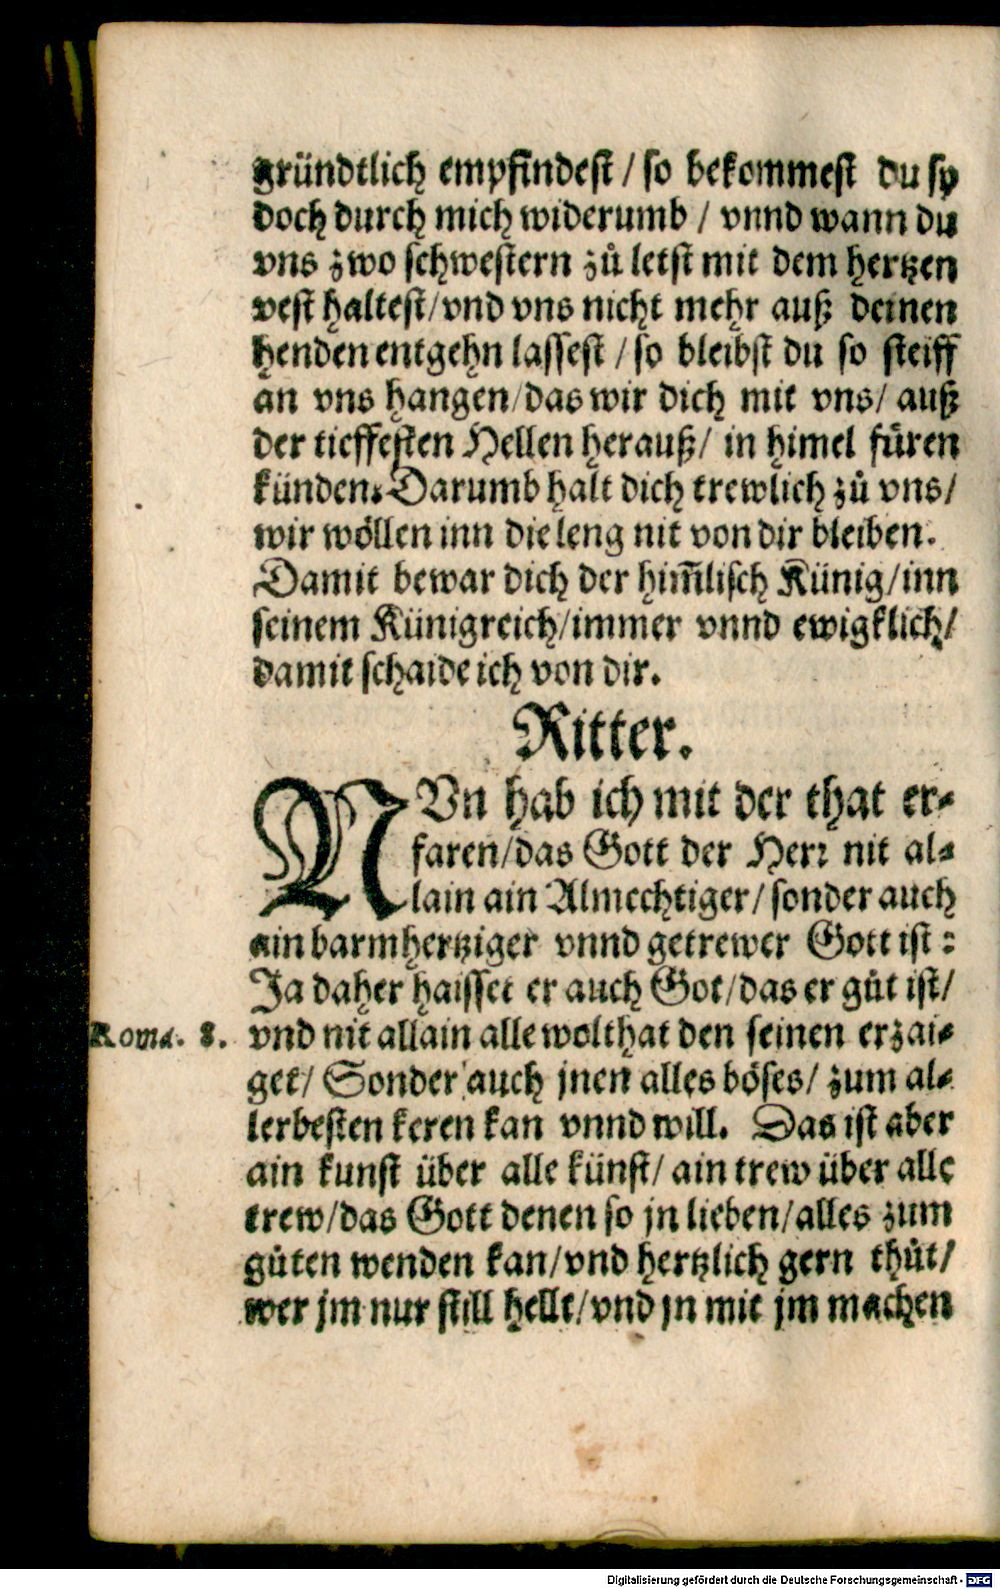 gründtlich empfindest / so bekommest du sy
doch durch mich widerumb / vnnd wann du
vns zwo schwestern zů letst mit dem hertzen
vest haltest / vnd vns nicht mehr auß deinen
henden entgehn lassest / so bleibst du so steiff
an vns hangen / das wir dich mit vns / auß
der tieffesten Hellen herauß / in himel fůren
künden. Darumb halt dich trewlich zů vns /
wir wöllen inn die leng nit von dir bleiben.
Damit bewar dich der him̃lisch Künig / inn
seinem Künigreich / immer vnnd ewigklich /
damit schaide ich von dir.
Ritter.
NVn hab ich mit der that er-
faren / das Gott der Herr nit al-
lain ain Almechtiger / sonder auch
ain barmhertziger vnnd getrewer Gott ist :
Ja daher haisset er auch Got / das er gůt ist /
Roma. 8. vnd nit allain alle wolthat den seinen erzai-
get / Sonder auch jnen alles böses / zum al-
lerbesten keren kan vnnd will. Das ist aber
ain kunst über alle künst / ain trew über alle
trew / das Gott denen so jn lieben / alles zum
gůten wenden kan / vnd hertzlich gern thůt /
wer jm nur still hellt / vnd jn mit jm machen
Digitalisierung gefördert durch die Deutsche Forschungsgemeinschaft - DFG